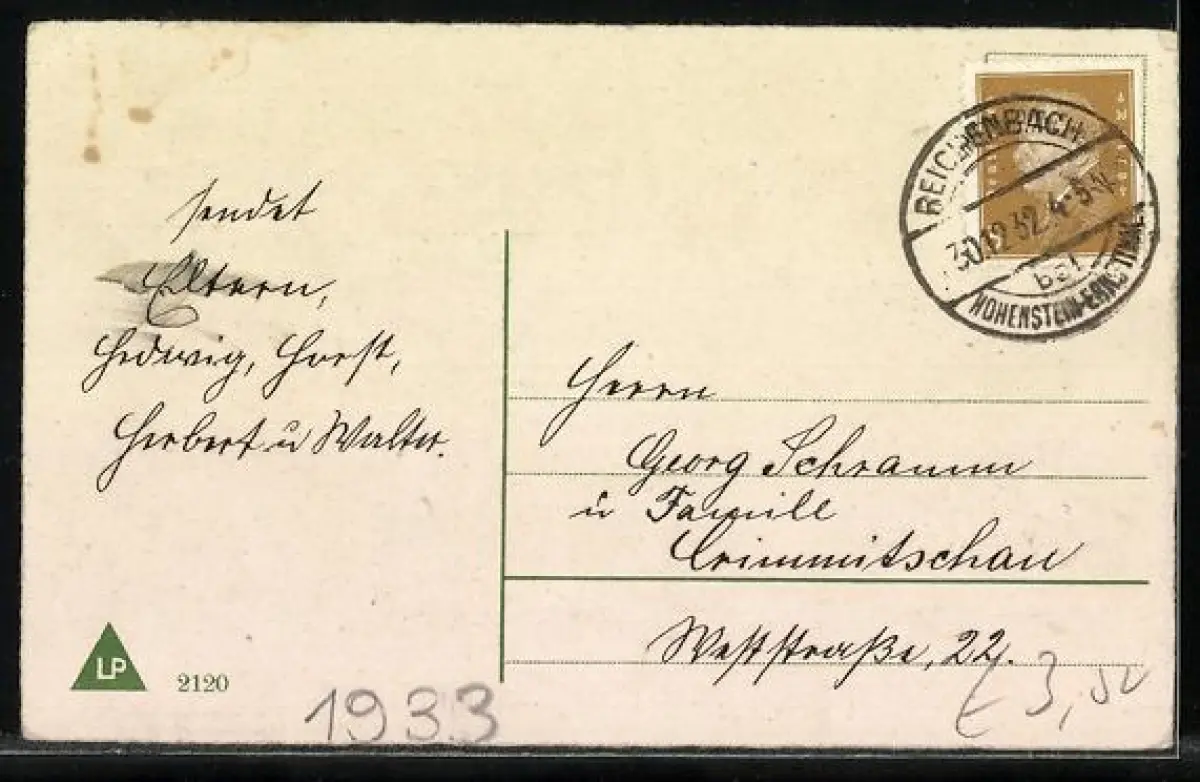 sendet
Eltern,
Hedwig, Horst,
Herbert u Walter.
REICHENBACH
30.12.32.4-5N
bei
HOHENSTEIN-ERNSTTHAL
Herrn
Georg Schramm
u Familie
Crimmitschau
Weststraße, 22.
LP
2120
1933
3,50